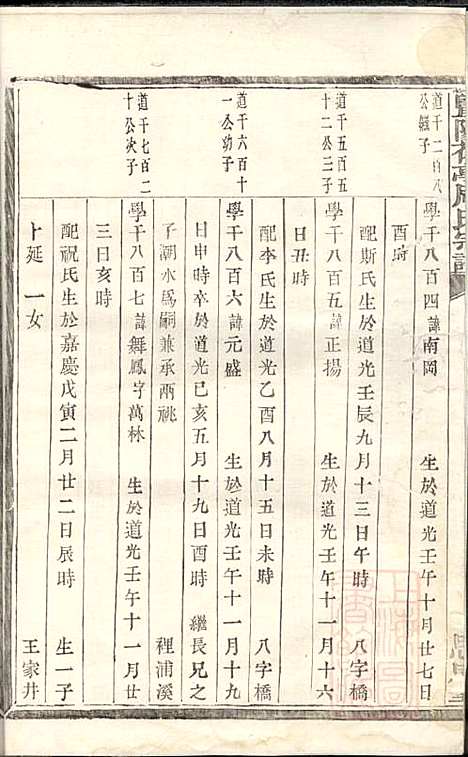 氏宗譜
道千二百八
公繼子
學千八百四諱南岡 生於道光壬午十月廿七日
酉時
配斯氏生於道光壬辰九月十三日午時 八字橋
道千五百五
十二公三子
學千八百五諱正揚 生於道光壬午十一月十六
日丑時
配李氏生於道光乙酉八月十五日未時 八字橋
道千六百十
一公幼子
學千八百六諱元盛 生於道光壬午十一月十九
日申時卒於道光己亥五月十九日酉時 繼長兄之
子潮水爲嗣兼承兩祧 裡浦溪
道千七百二
十公次子
學千八百七諱舞鳳字萬林 生於道光壬午十一月廿
三日亥時
配祝氏生於嘉慶戊寅二月廿二日辰時 生一子
十延 一女 王家井
上海圖